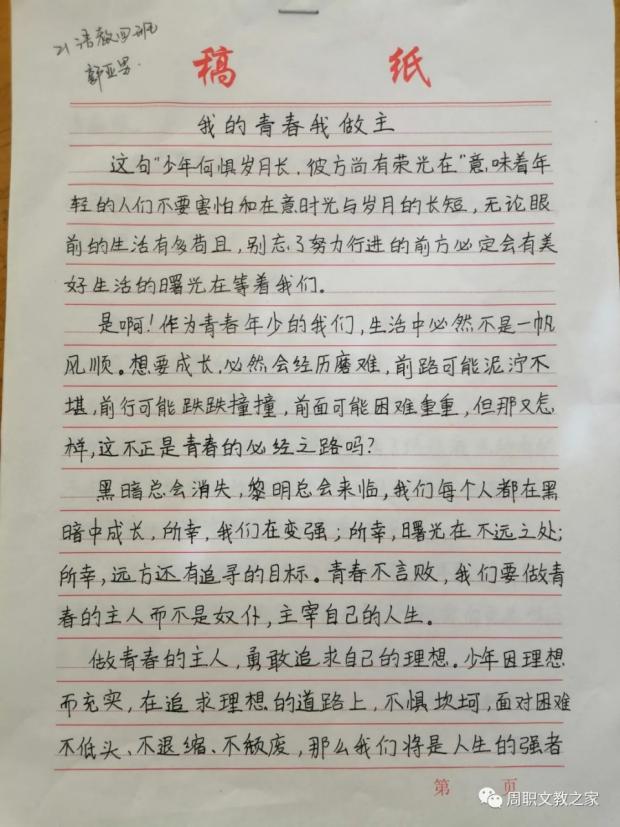 21语教四班
郭亚男.
稿 纸
我的青春我做主
这句“少年何惧岁月长，彼方尚有荣光在”意味着年
轻的人们不要害怕和在意时光与岁月的长短，无论眼
前的生活有多苟且，别忘了努力行进的前方必定会有美
好生活的曙光在等着我们。
是啊！作为青春年少的我们，生活中必然不是一帆
风顺。想要成长，必然会经历磨难，前路可能泥泞不
堪，前行可能跌跌撞撞，前面可能困难重重，但那又怎
样，这不正是青春的必经之路吗？
黑暗总会消失，黎明总会来临，我们每个人都在黑
暗中成长，所幸，我们在变强；所幸，曙光在不远之处；
所幸，远方还有追寻的目标。青春不言败，我们要做青
春的主人而不是奴仆，主宰自己的人生。
做青春的主人，勇敢追求自己的理想。少年因理想
而充实，在追求理想的道路上，不惧坎坷，面对困难
不低头、不退缩、不颓废，那么我们将是人生的强者
第 页
周职文教之家